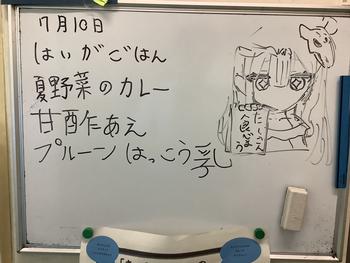 7月10日
はいがごはん
夏野菜のカレー
甘酢あえ
プルーンはっこう乳
たーっくさん
食べよう